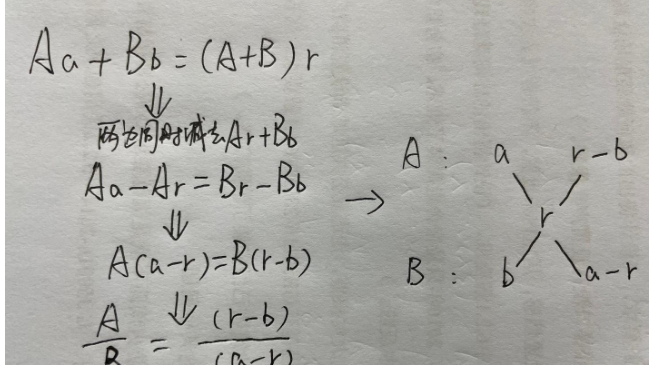 Aa + Bb = (A+B) r
⇓
两边同时减去Ar+Bb
Aa-Ar = Br-Bb
⇓
A(a-r)=B(r-b)
⇓
A/B = (r-b)/(a-r)
→
A : a r-b
r
B : b a-r